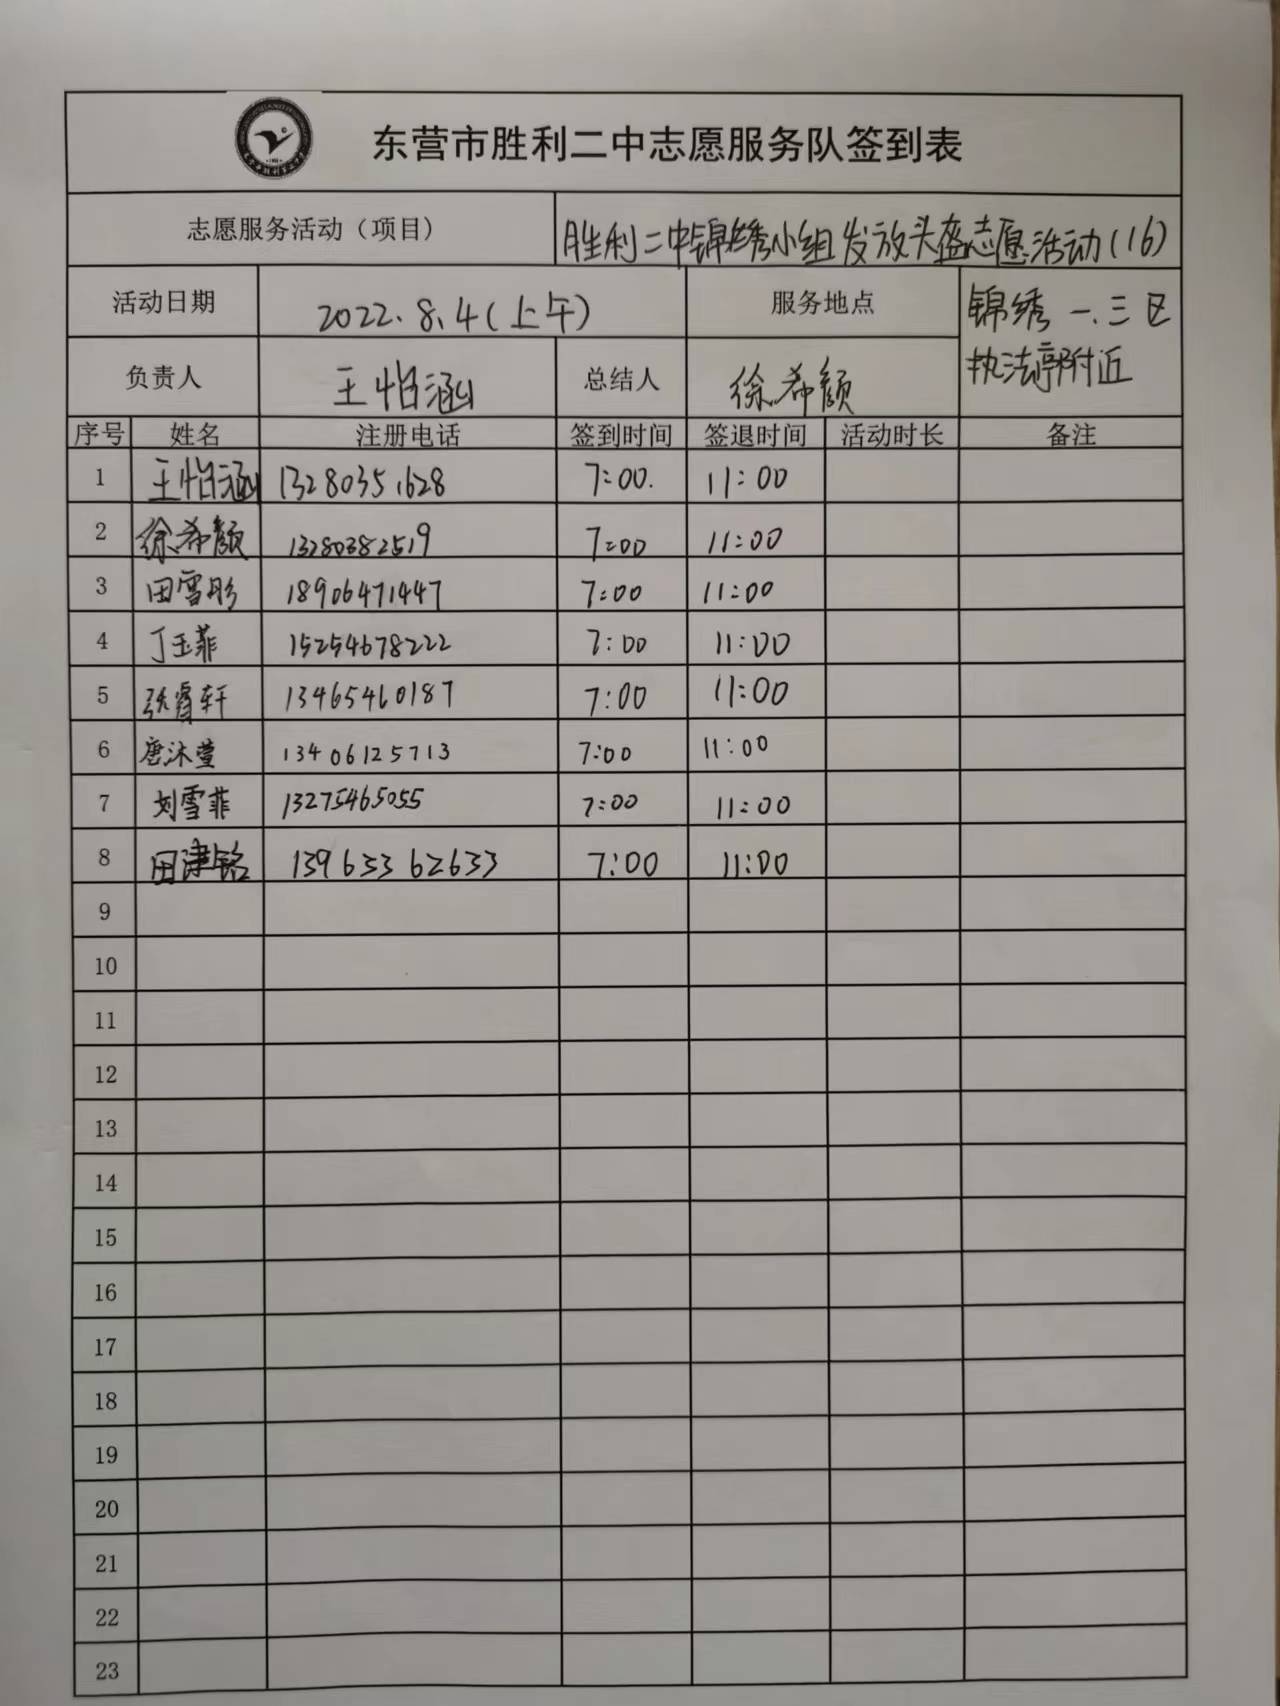 东营市胜利二中志愿服务队签到表
志愿服务活动（项目） 胜利二中锦绣小组发放头盔志愿活动(16)
活动日期 2022.8.4(上午) 服务地点 锦绣一.三区
执法亭附近
负责人 王怡涵 总结人 徐希颜
序号 姓名 注册电话 签到时间 签退时间 活动时长 备注
1 王怡涵 13280351628 7:00. 11:00
2 徐希颜 13280382519 7:00 11:00
3 田雪彤 18906471447 7:00 11:00
4 丁玉菲 15254678222 7:00 11:00
5 张睿轩 13465460187 7:00 11:00
6 唐沐莹 13406125713 7:00 11:00
7 刘雪菲 13275465055 7:00 11:00
8 田津铭 13963362633 7:00 11:00
9
10
11
12
13
14
15
16
17
18
19
20
21
22
23